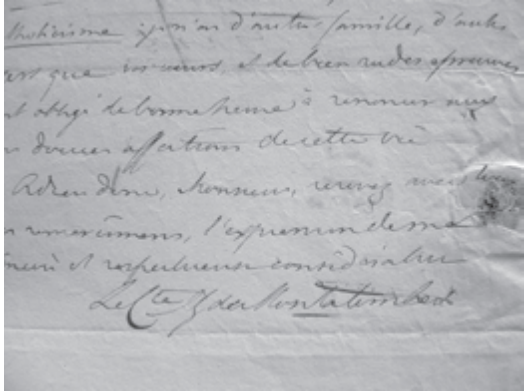 tholicisme je n'ai d'autre famille, d'autre
que vos vœux, et de bien rudes épreuves
obligé de bonne heure à renoncer aux
douces affections de cette vie
Adieu donc, Monsieur, recevez avec tous
remerciemens, l'expression de ma
et respectueuse considération
Le Cte de Montalembert